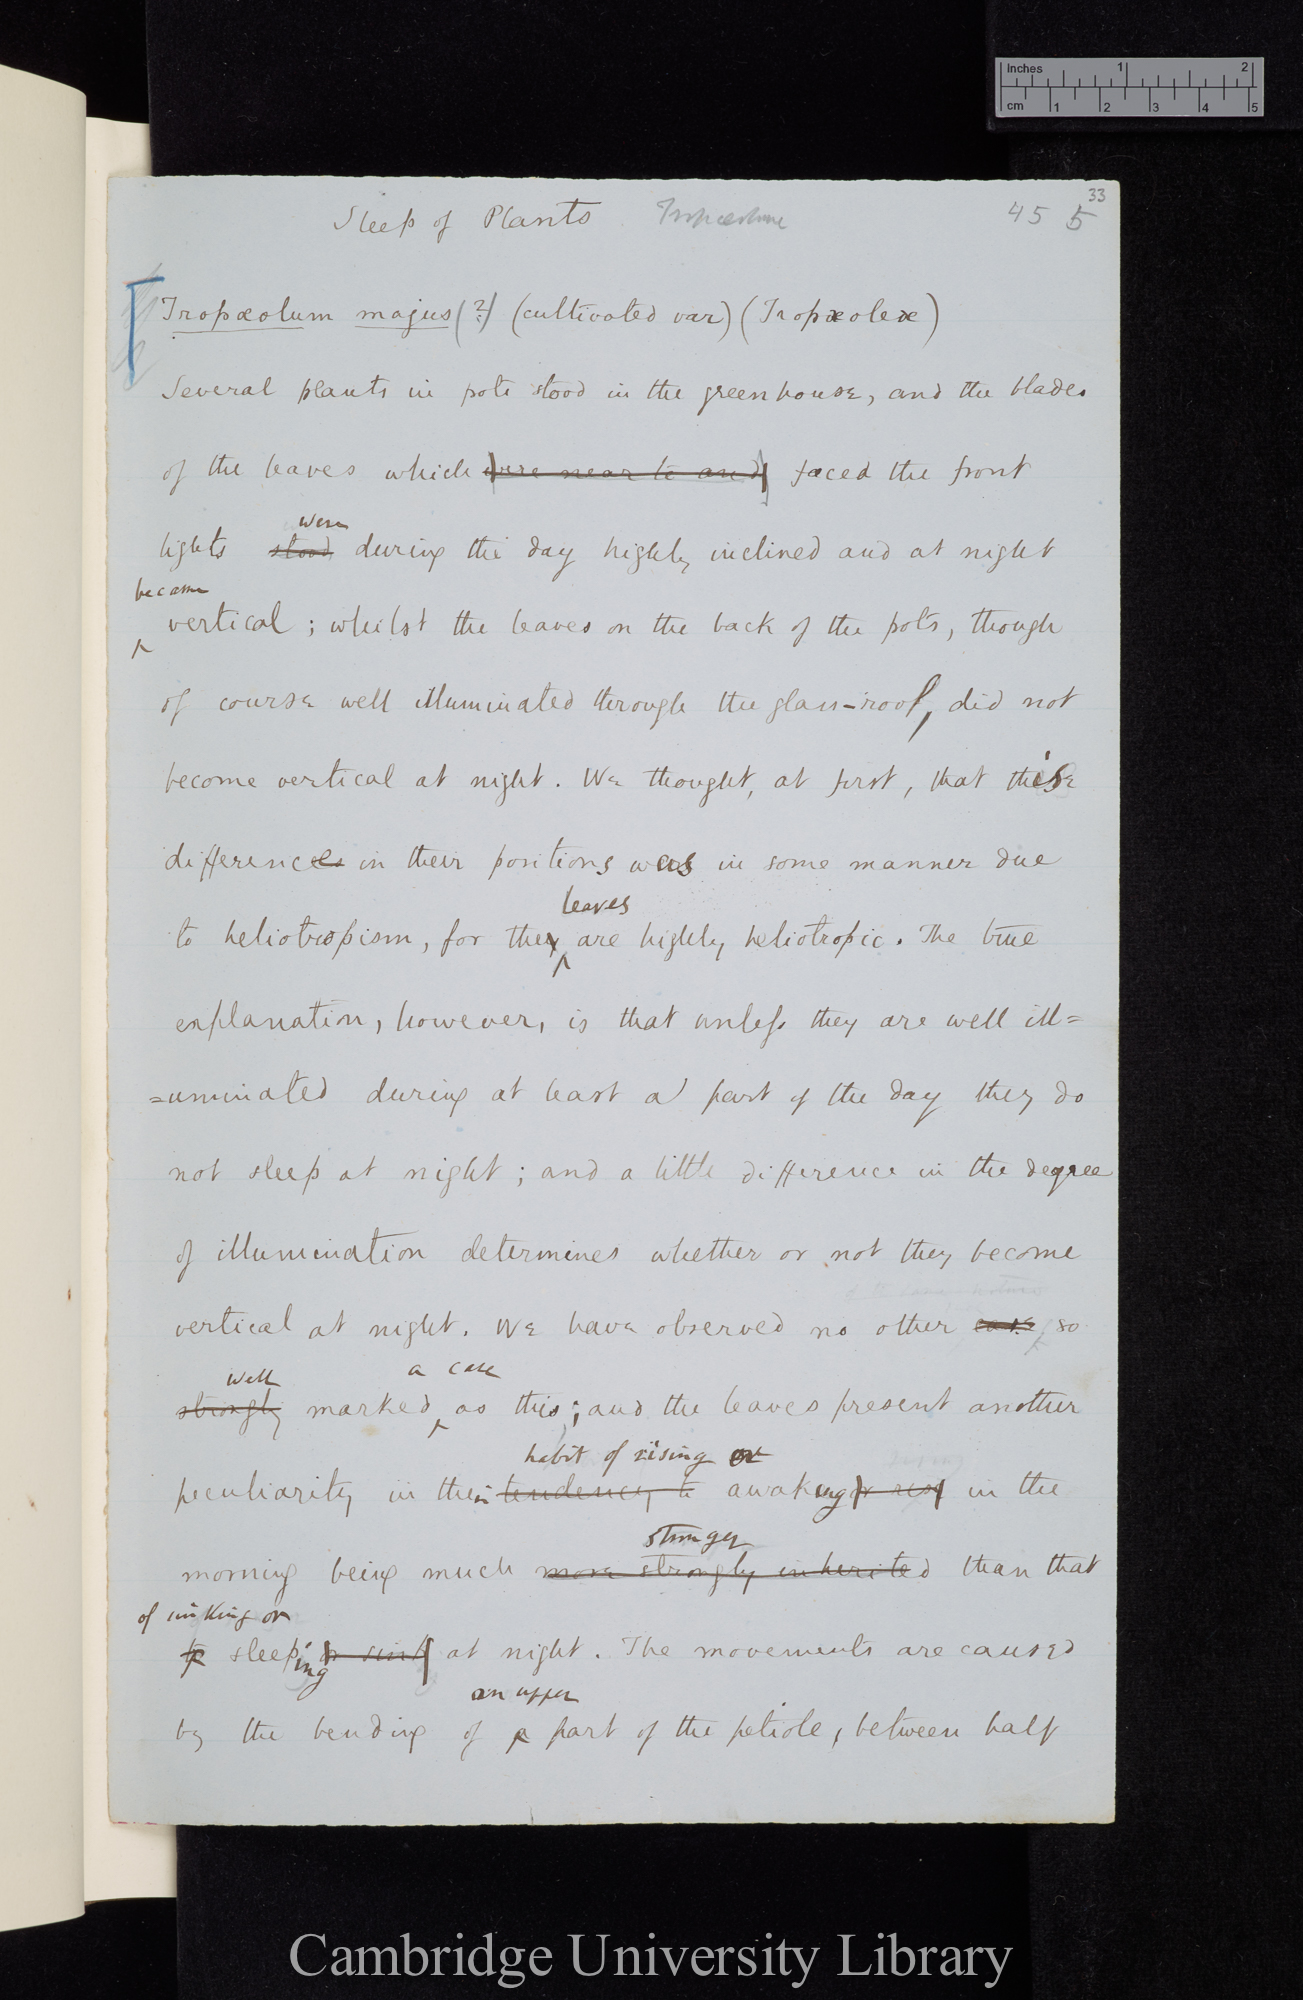 Inches 1 2
cm 1 2 3 4 5
33
Sleep of Plants Tropæolum 45 5
Tropæolum majus (?) (cultivated var) (Tropæoleæ)
Several plants in pots stood in the greenhouse, and the blades
of the leaves which were near to and faced the front
were
lights stood during the day highly inclined and at night
became
vertical; whilst the leaves on the back of the pots, though
of course well illuminated through the glass-roof, did not
become vertical at night. We thought, at first, that this
difference in their positions was in some manner due
leaves
to heliotropism, for they are highly heliotropic. The true
explanation, however, is that unless they are well ill=
=uminated during at least a part of the day they do
not sleep at night; and a little difference in the degree
of illumination determines whether or not they become
vertical at night. We have observed no other case so
well a case
strongly marked as this; and the leaves present another
habit of rising or
peculiarity in their tendency to awaking or rise in the
stronger
morning being much more strongly inherited than that
of sinking or
to sleeping or sink at night. The movements are caused
an upper
by the bending of a part of the petiole, between half
Cambridge University Library